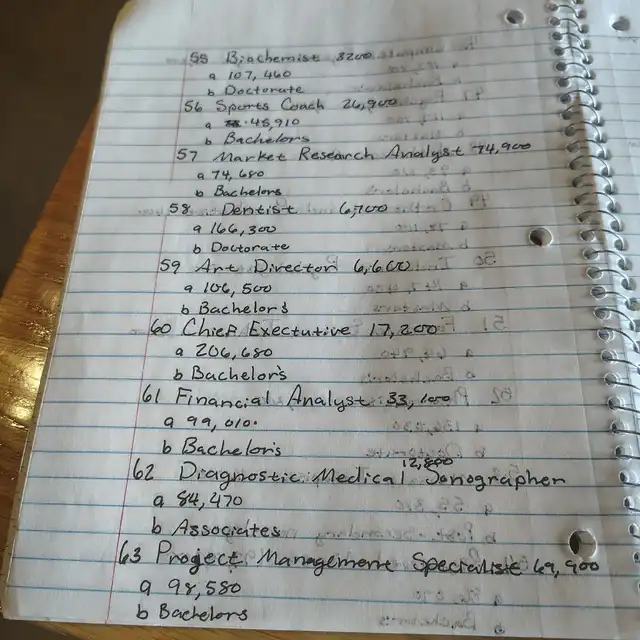 55 Biochemist 3200
a 107,460
b Doctorate
56 Sports Coach 26,900
a 45,910
b Bachelors
57 Market Research Analyst 74,900
a 74,680
b Bachelors
58 Dentist 6,700
a 166,300
b Doctorate
59 Art Director 6,600
a 106,500
b Bachelor's
60 Chief Exectutive 17,200
a 206,680
b Bachelor's
61 Financial Analyst 33,100
a 99,010
b Bachelor's
62 Diagnostic Medical Sonographer 12,800
a 84,470
b Associates
63 Project Management Specialist 69,900
a 98,580
b Bachelors